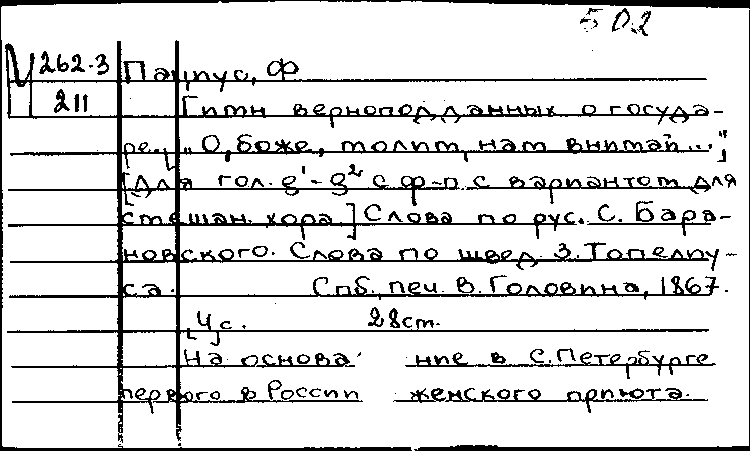 502
М 262-3 Пациус, Ф
211 Гимн верноподданных о госуда-
ре. „О, боже, молим, нам внимай..."
[Для гол. g¹-g² с ф-п с вариантом для
смешан. хора.] Слова по рус. С. Бара-
новского. Слова по швед. З. Топелиу-
са. Спб, печ. В. Головина, 1867.
[4]с. 28см.
На основание в С. Петербурге
первого в России женского приюта.